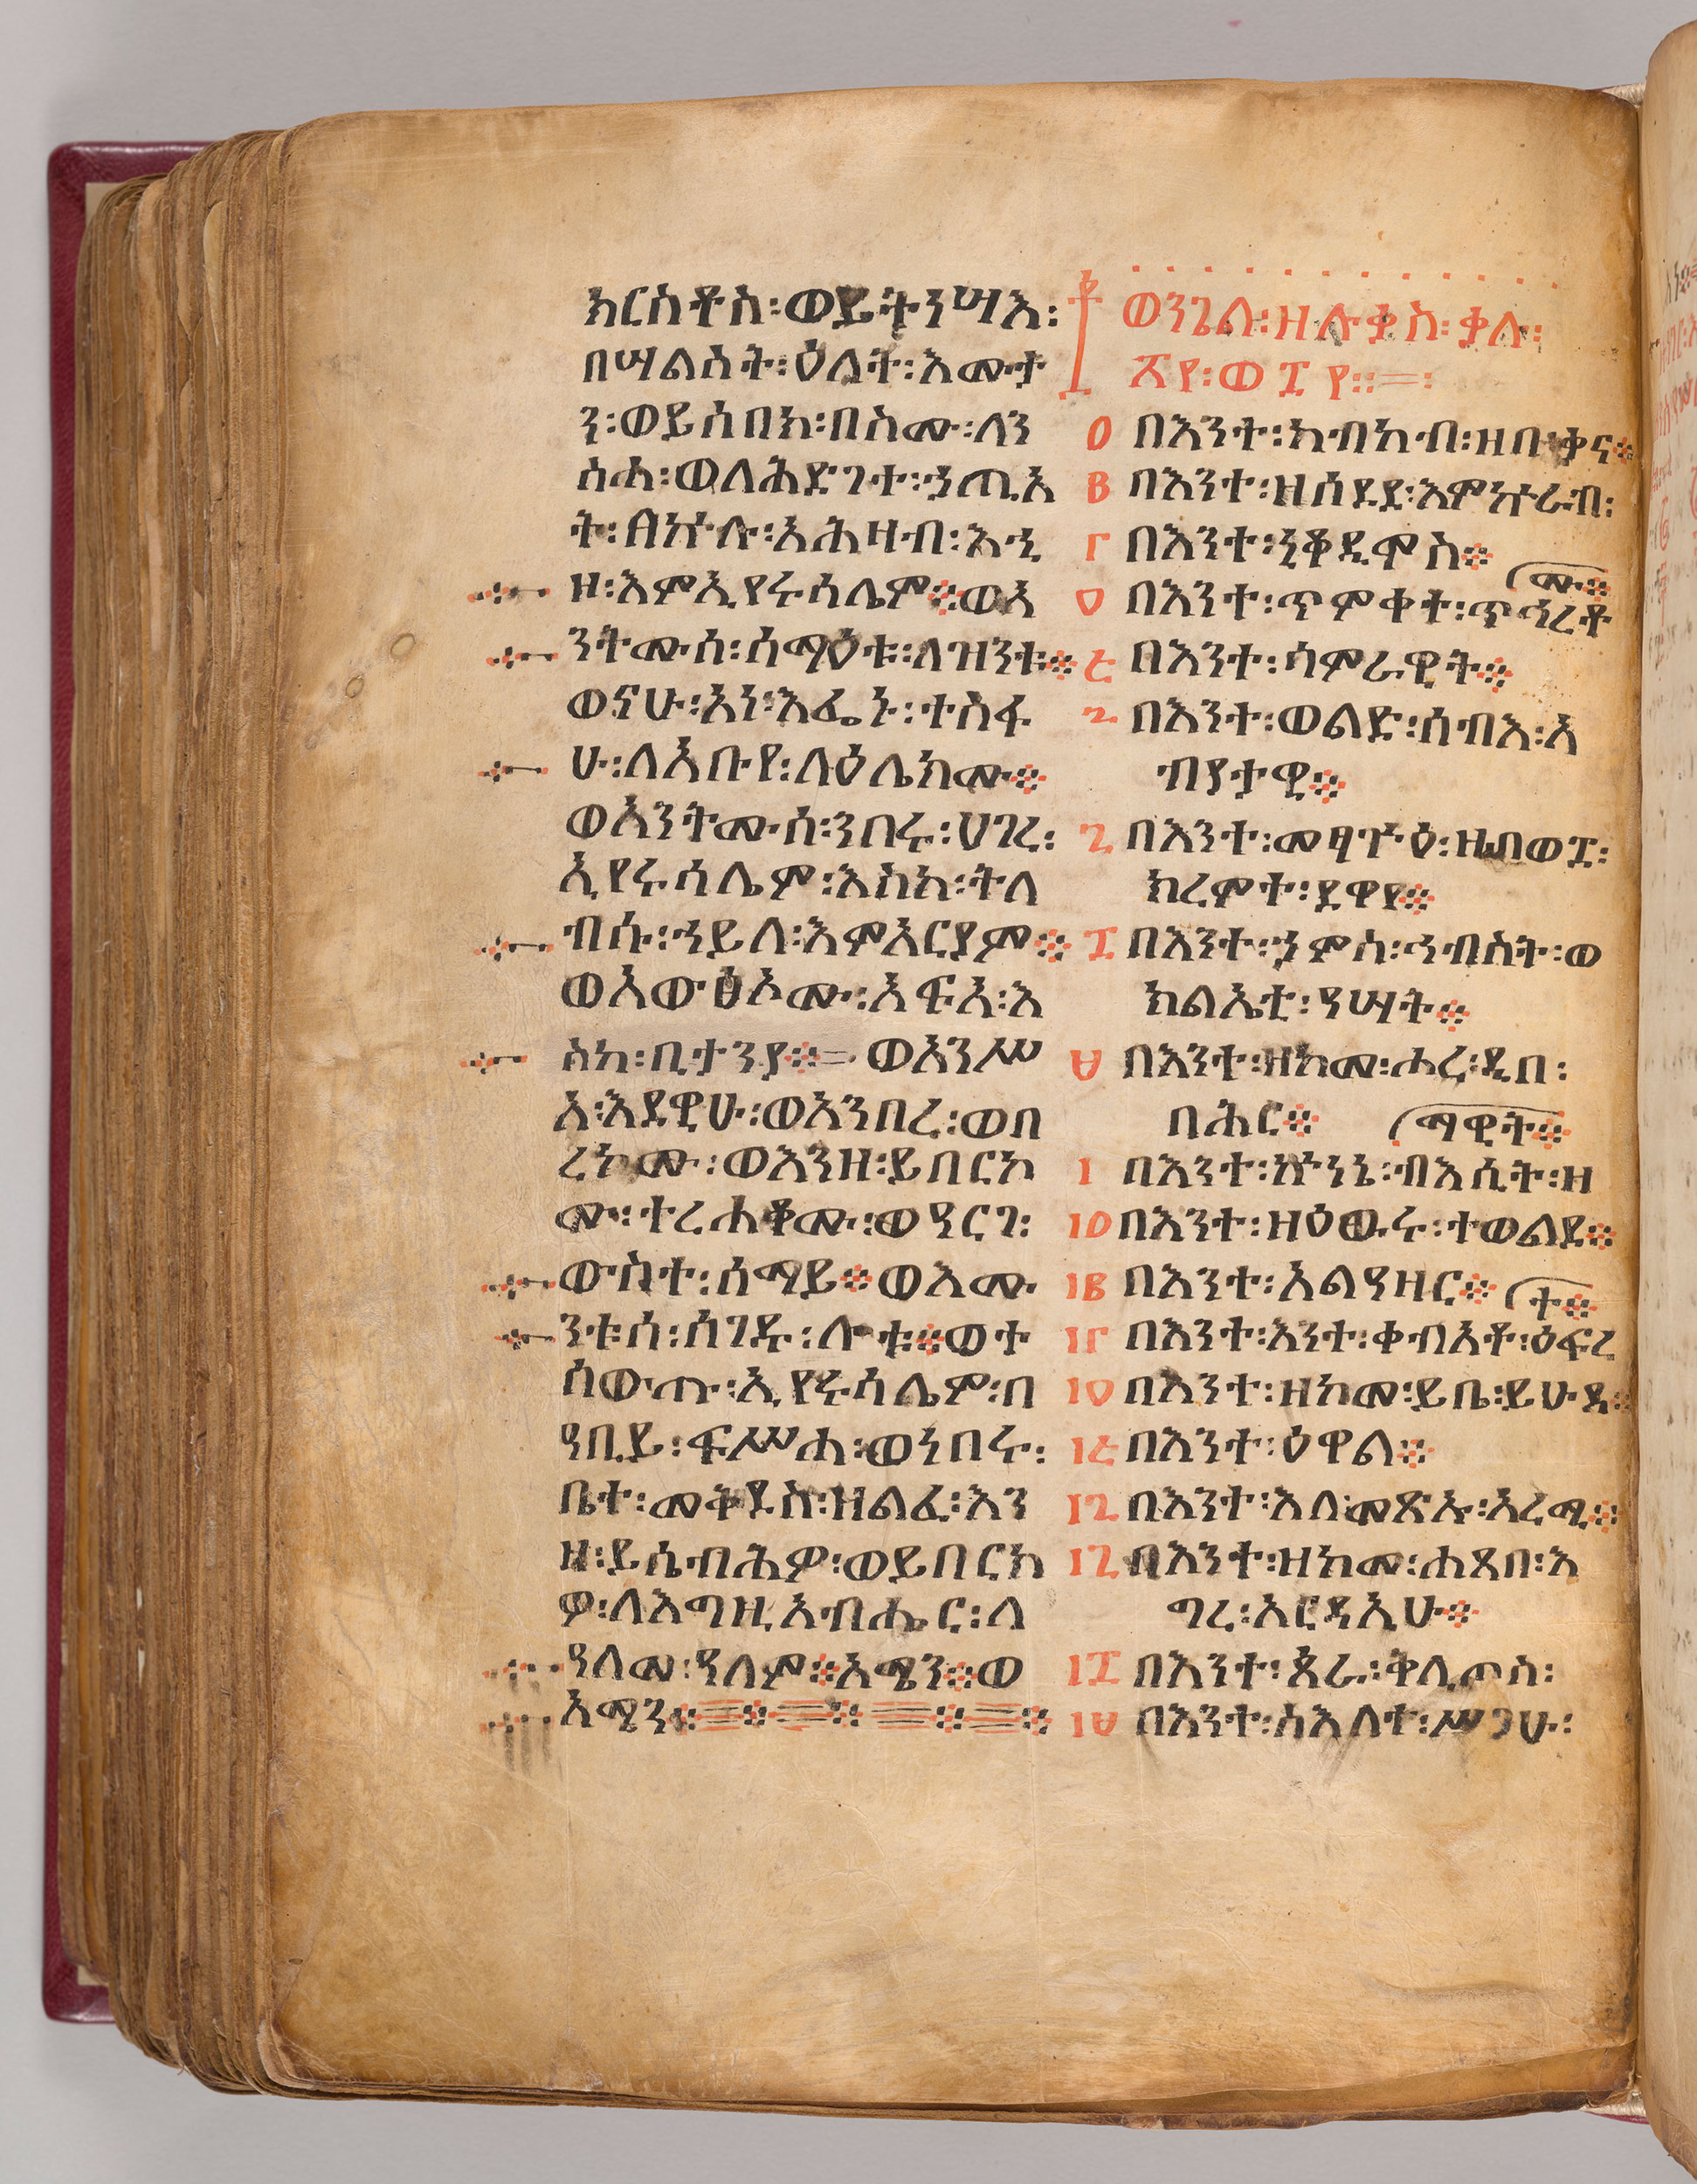 ክርስቶስ፡ወይትንሣእ፡
በሣልስት፡ዕለት፡እሙታ
ን፡ወይሰበክ፡በስሙ፡ለን
ስሐ፡ወለሕድገተ፡ኃጢአ
ት፡ለኵሉ፡አሕዛብ፡እኂ
ዞ፡እምኢየሩሳሌም፨ወአ
ንትሙሰ፡ሰማዕቱ፡ለዝንቱ፨
ወናሁ፡አነ፡እፌኑ፡ተስፋ
ሁ፡ለአቡየ፡ላዕሌክሙ፨
ወአንትሙሰ፡ንበሩ፡ሀገረ፡
ኢየሩሳሌም፡እስከ፡ትለ
ብሱ፡ኃይለ፡እምአርያም፨
ወአውፅኦሙ፡አፍአ፡እ
ስከ፡ቢታንያ፨ወአንሥ
አ፡እደዊሁ፡ወአንበረ፡ወበ
ረኮሙ፡ወእንዘ፡ይበርኮ
ሙ፡ተረሐቆሙ፡ወዓርገ፡
ውስተ፡ሰማይ፨ወእሙ
ንቱሰ፡ሰገዱ፡ሎቱ፨ወተ
ሰውጡ፡ኢየሩሳሌም፡በ
ዓቢይ፡ፍሥሐ፡ወነበሩ፡
ቤተ፡መቅደስ፡ዘልፈ፡እን
ዘ፡ይሴብሕዎ፡ወይበርክ
ዎ፡ለእግዚአብሔር፡ለ
ዓለመ፡ዓለም፨አሜን፨ወ
አሜን፨
ወንጌል፡ዘሉቃስ፡ቃሉ፡
፳፻፡ወ፰፻፡፡
፩ በእንተ፡ከብካብ፡ዘበ፡ቃና፨
፪ በእንተ፡ዘሰደደ፡እምኵራብ፡
፫ በእንተ፡ኒቆዲሞስ፨
፬ በእንተ፡ጥምቀት፡ጥኅረቶ
ሙ፨
፭ በእንተ፡ሳምራዊት፨
፮ በእንተ፡ወልደ፡ሰብእ፡አ
ብያታዊ፨
፯ በእንተ፡መፃጕዕ፡ዘ፴ወ፰፡
ክረምተ፡ደዋየ፨
፰ በእንተ፡ኃምስ፡ኅብስት፡ወ
ክልኤቲ፡ዓሣት፨
፱ በእንተ፡ዘከመ፡ሖረ፡ዲበ፡
በሕር፨
፲ በእንተ፡ኵነኔ፡ብእሲት፡ዘ
ማዊት፨
፲፩ በእንተ፡ዘዕዉሩ፡ተወልደ፨
፲፪ በእንተ፡አልዓዘር፨
፲፫ በእንተ፡እንተ፡ቀብአቶ፡ዕፍረ
ተ፨
፲፬ በእንተ፡ዘከመ፡ይቤ፡ይሁዳ፨
፲፭ በእንተ፡ዕዋል፨
፲፮ በእንተ፡እለ፡መጽኡ፡አረሚ፨
፲፯ በእንተ፡ዘከመ፡ሐጸበ፡እ
ግረ፡አርዳኢሁ፨
፲፰ በእንተ፡ጰራ፡ቅሊጦስ፡
፲፱ በእንተ፡ስእለት፡ሥጋሁ፡